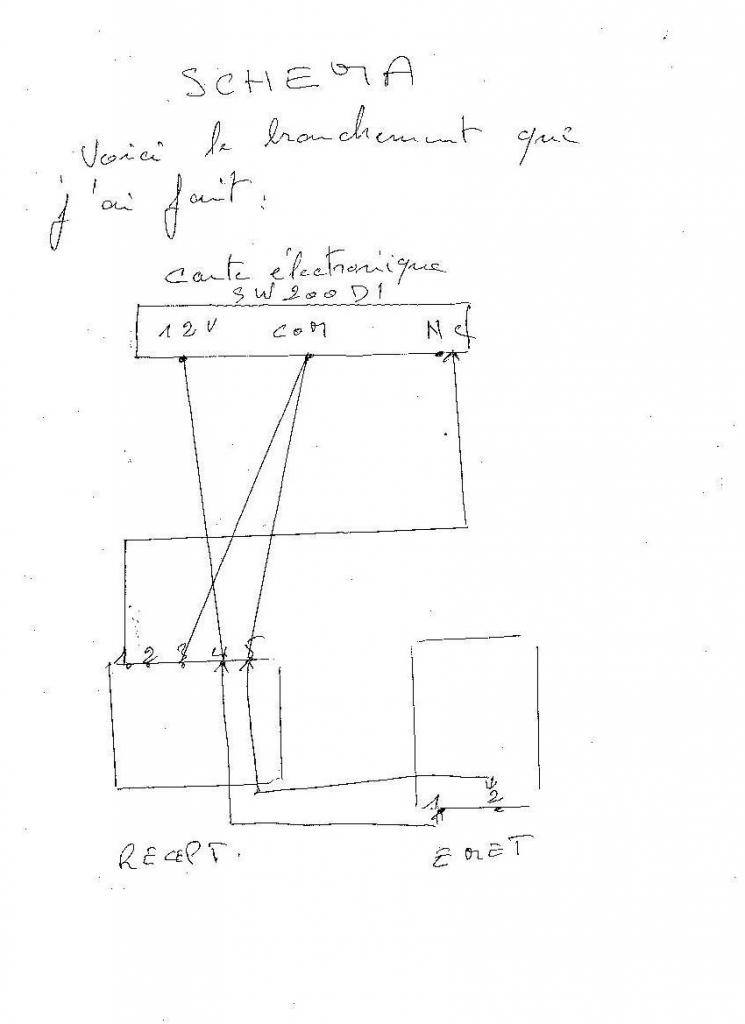 SCHEMA
Voici le branchement que
j'ai fait :
carte électronique
SW200DI
12V COM NC
1 2 3 4 5
1 2
RECEPT. EMET